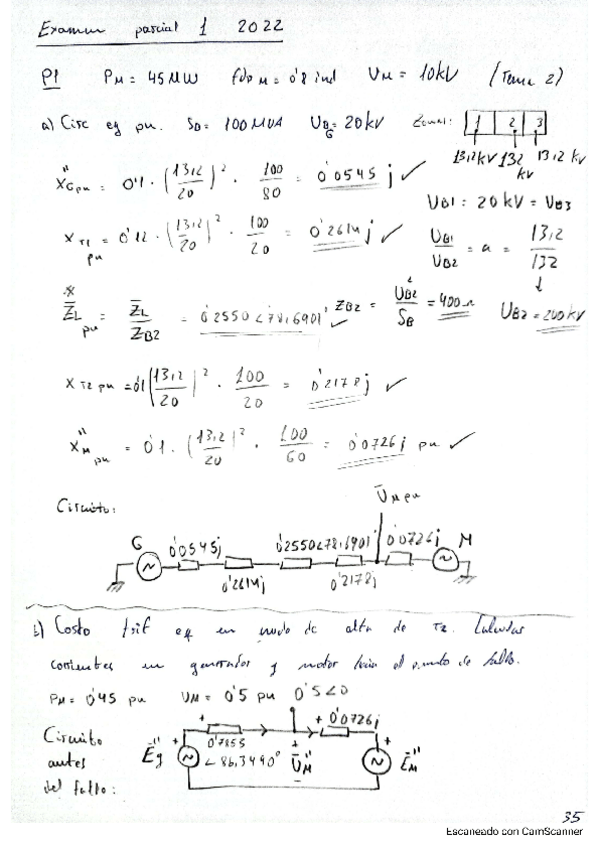 Examen parcial 1 2022
P1 PM = 45 MW fdp M = 0'8 ind UM = 10kV (Tema 2)
a) Circ eq pu. SB = 100 MVA UBG = 20 kV Zonas: 1 2 3
13,2kV 132 kV 13,2 kV
X"G pu = 0'1 · (13,2/20)² · 100/80 = 0'0545 j ✓
UB1 = 20 kV = UB3
X T1 pu = 0'12 · (13,2/20)² · 100/20 = 0'2614 j ✓
UB1/UB2 = a = 13,2/132
↓
UB2 = 200 kV
* ZL pu = ZL/ZB2 = 0'2550 <78,6901° ✓, ZB2 = UB2²/SB = 400 Ω
X T2 pu = 0'1 (13,2/20)² · 100/20 = 0'2178 j ✓
X"M pu = 0'1 · (13,2/20)² · 100/60 = 0'0726 j pu ✓
Circuito:
UM pu
G 0'0545j 0'2614j 0'2550<78,6901 0'2178j 0'0726j M
b) Ccto trif eq en nudo de alta de T2. Calculas
corrientes en generador y motor hacia el punto de falta.
PM = 0'45 pu UM = 0'5 pu 0'5<0
Circuito antes del falto:
E"g + 0'7855 <86,3490° + U"M - + 0'0726j + E"M
35
Escaneado con CamScanner